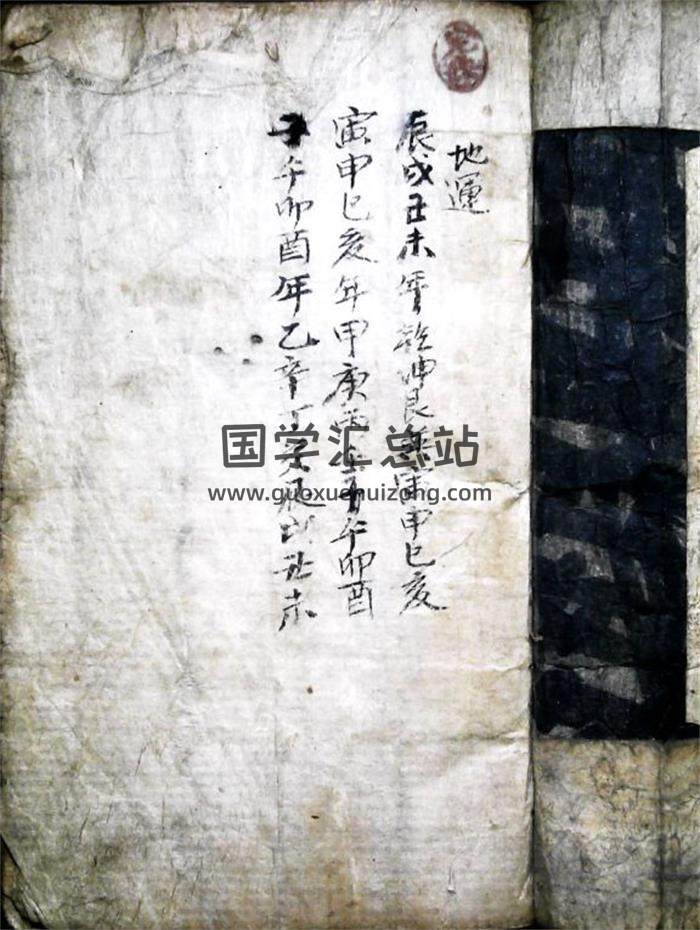 地運
辰戌丑未年乾坤艮巽寅申巳亥
寅申巳亥年甲庚丙壬子午卯酉
子午卯酉年乙辛丁癸辰戌丑未
国学汇总站
www.guoxuehuizong.com